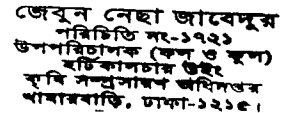 জেবুন নেছা জাবেদুর
পরিচিতি নং-১৭২১
উপপরিচালক (ফল ও ফুল)
হর্টিকালচার উইং
কৃষি সম্প্রসারণ অধিদপ্তর
খামারবাড়ি, ঢাকা-১২১৫।